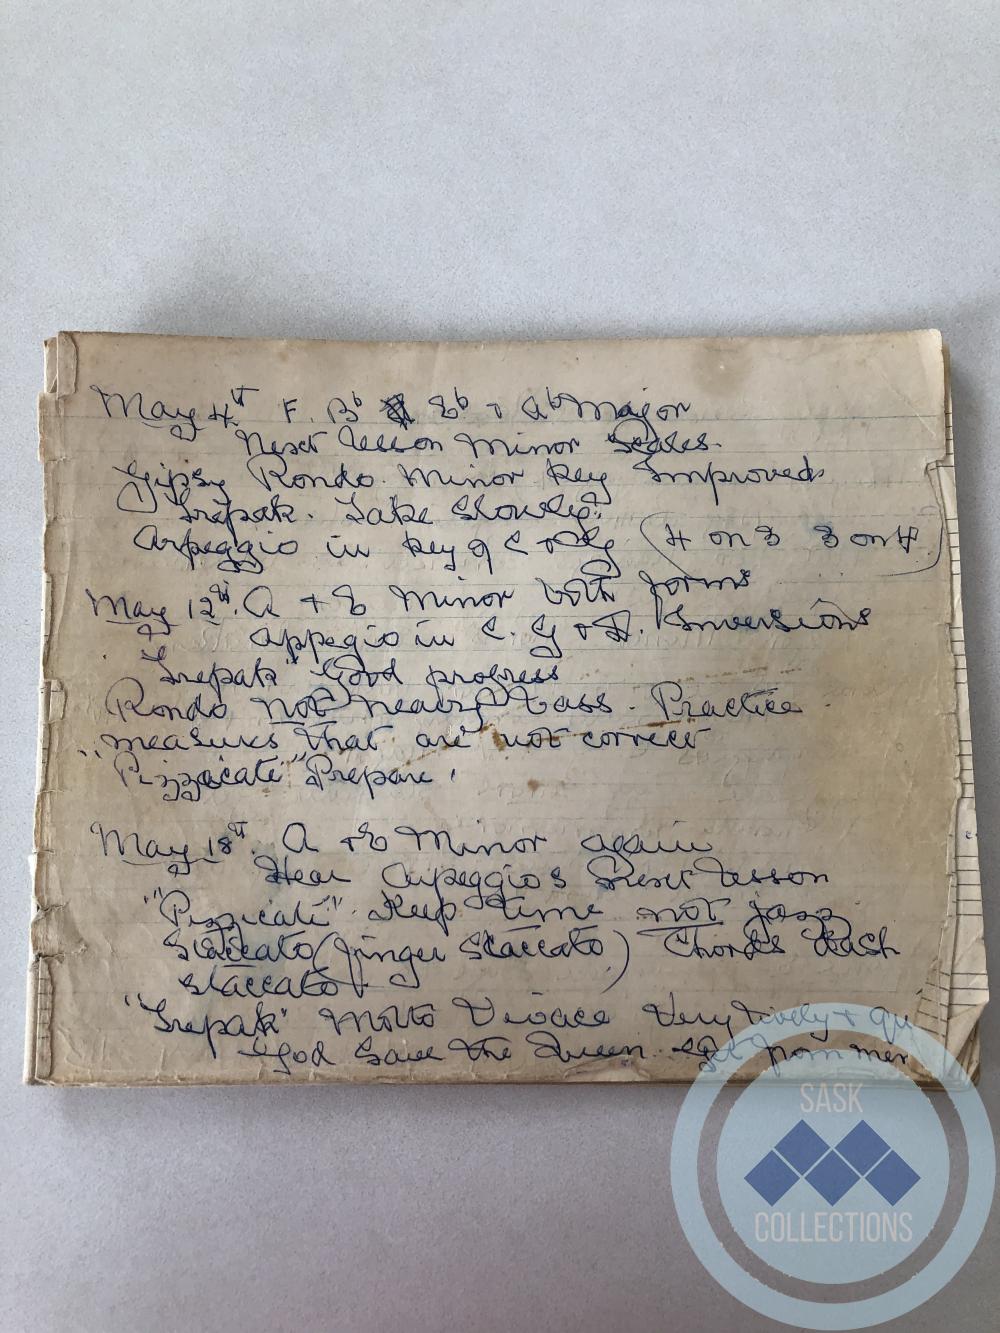 May 4th F. Bb Eb + Ab Major
Next Lesson Minor Scales.
Gipsy Rondo. Minor Key Improved
Trepak. Take Slowly.
Arpeggio in key of C + G (4 on 3 3 on 4)
May 12th. A + E Minor both forms
Appegio in C. G + A. Inversions
"Trepak" Good progress
Rondo not heavy bass. Practice
measures that are not correct
"Pizzacati" Prepare.
May 18th. A + E Minor again
Hear Arpeggios next Lesson
"Pizzicati". Keep time not jazz
Staccato (finger Staccato) Chords
staccato.
"Trepak" Molto Vivace Very lively + qu
God Save the Queen. from mem
SASK
COLLECTIONS